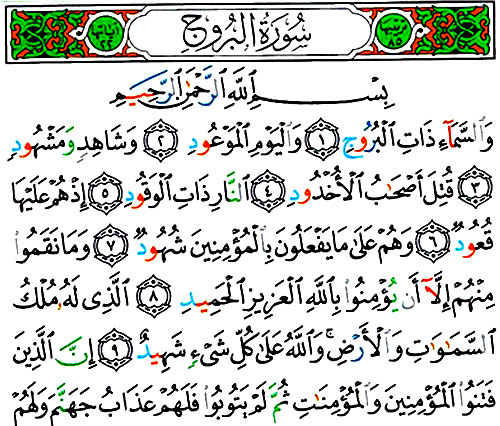 سُورَةُ البُرُوجِ
بِسْمِ ٱللَّهِ ٱلرَّحْمَٰنِ ٱلرَّحِيمِ
وَٱلسَّمَآءِ ذَاتِ ٱلْبُرُوجِ ١ وَٱلْيَوْمِ ٱلْمَوْعُودِ ٢ وَشَاهِدٍ وَمَشْهُودٍ
٣ قُتِلَ أَصْحَٰبُ ٱلْأُخْدُودِ ٤ ٱلنَّارِ ذَاتِ ٱلْوَقُودِ ٥ إِذْ هُمْ عَلَيْهَا
قُعُودٌ ٦ وَهُمْ عَلَىٰ مَا يَفْعَلُونَ بِٱلْمُؤْمِنِينَ شُهُودٌ ٧ وَمَا نَقَمُوا۟
مِنْهُمْ إِلَّآ أَن يُؤْمِنُوا۟ بِٱللَّهِ ٱلْعَزِيزِ ٱلْحَمِيدِ ٨ ٱلَّذِى لَهُۥ مُلْكُ
ٱلسَّمَٰوَٰتِ وَٱلْأَرْضِ ۚ وَٱللَّهُ عَلَىٰ كُلِّ شَىْءٍ شَهِيدٌ ٩ إِنَّ ٱلَّذِينَ
فَتَنُوا۟ ٱلْمُؤْمِنِينَ وَٱلْمُؤْمِنَٰتِ ثُمَّ لَمْ يَتُوبُوا۟ فَلَهُمْ عَذَابُ جَهَنَّمَ وَلَهُمْ